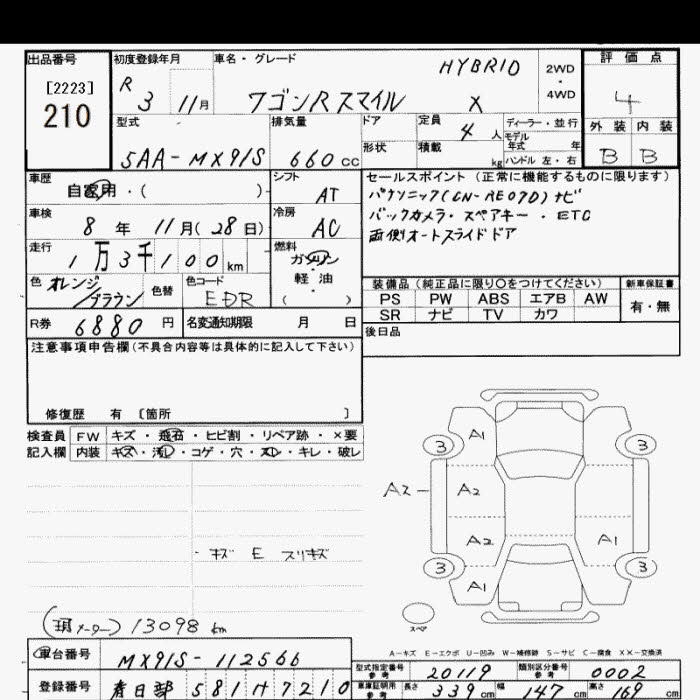 出品番号 初度登録年月 車名・グレード 評価点
[2223]
210
R 3 11月 ワゴンR スマイル HYBRID X 2WD・4WD
4
外装 内装
B B
型式 排気量 ドア 定員 ディーラー・並行
5AA-MX91S 660cc 形状 積載 4人 kg モデル年式 年 ハンドル 左・右
車歴 自家用・( ) シフト AT
セールスポイント(正常に機能するものに限ります)
パナソニック(CN-RE07D)ナビ
バックカメラ・スペアキー・ETC
両側オートスライドドア
車検 8年 11月(28日) 冷房 AC
走行 1万3千100km 燃料 ガソリン 軽油 ( )
色 オレンジ/ブラウン 色替 色コード EDR
装備品(純正品に限り○をつけてください) 新車保証書
PS PW ABS エアB AW 有・無
SR ナビ TV カワ
R券 6880円 名変通知期限 月 日
後日品
注意事項申告欄(不具合内容等は具体的に記入して下さい)
修復歴 有 〔箇所 〕
検査員 FW キズ・飛石・ヒビ割・リペア跡・×要
記入欄 内装 キズ・汚レ・コゲ・穴・スレ・キレ・破レ
A1
3 3
A2 A2
A2 A1
3 3
A1
・キズ E スリキズ
スペア
(現メーター) 13098 km
A-キズ E-エクボ U-凹み W-補修跡 S-サビ C-腐食 XX-交換済
車台番号 MX91S-112566
型式指定番号 参考 20119 類別区分番号 参考 0002
登録番号 春日部 581 ハ 7210
車庫証明用 参考 長さ 339cm 幅 147cm 高さ 169cm